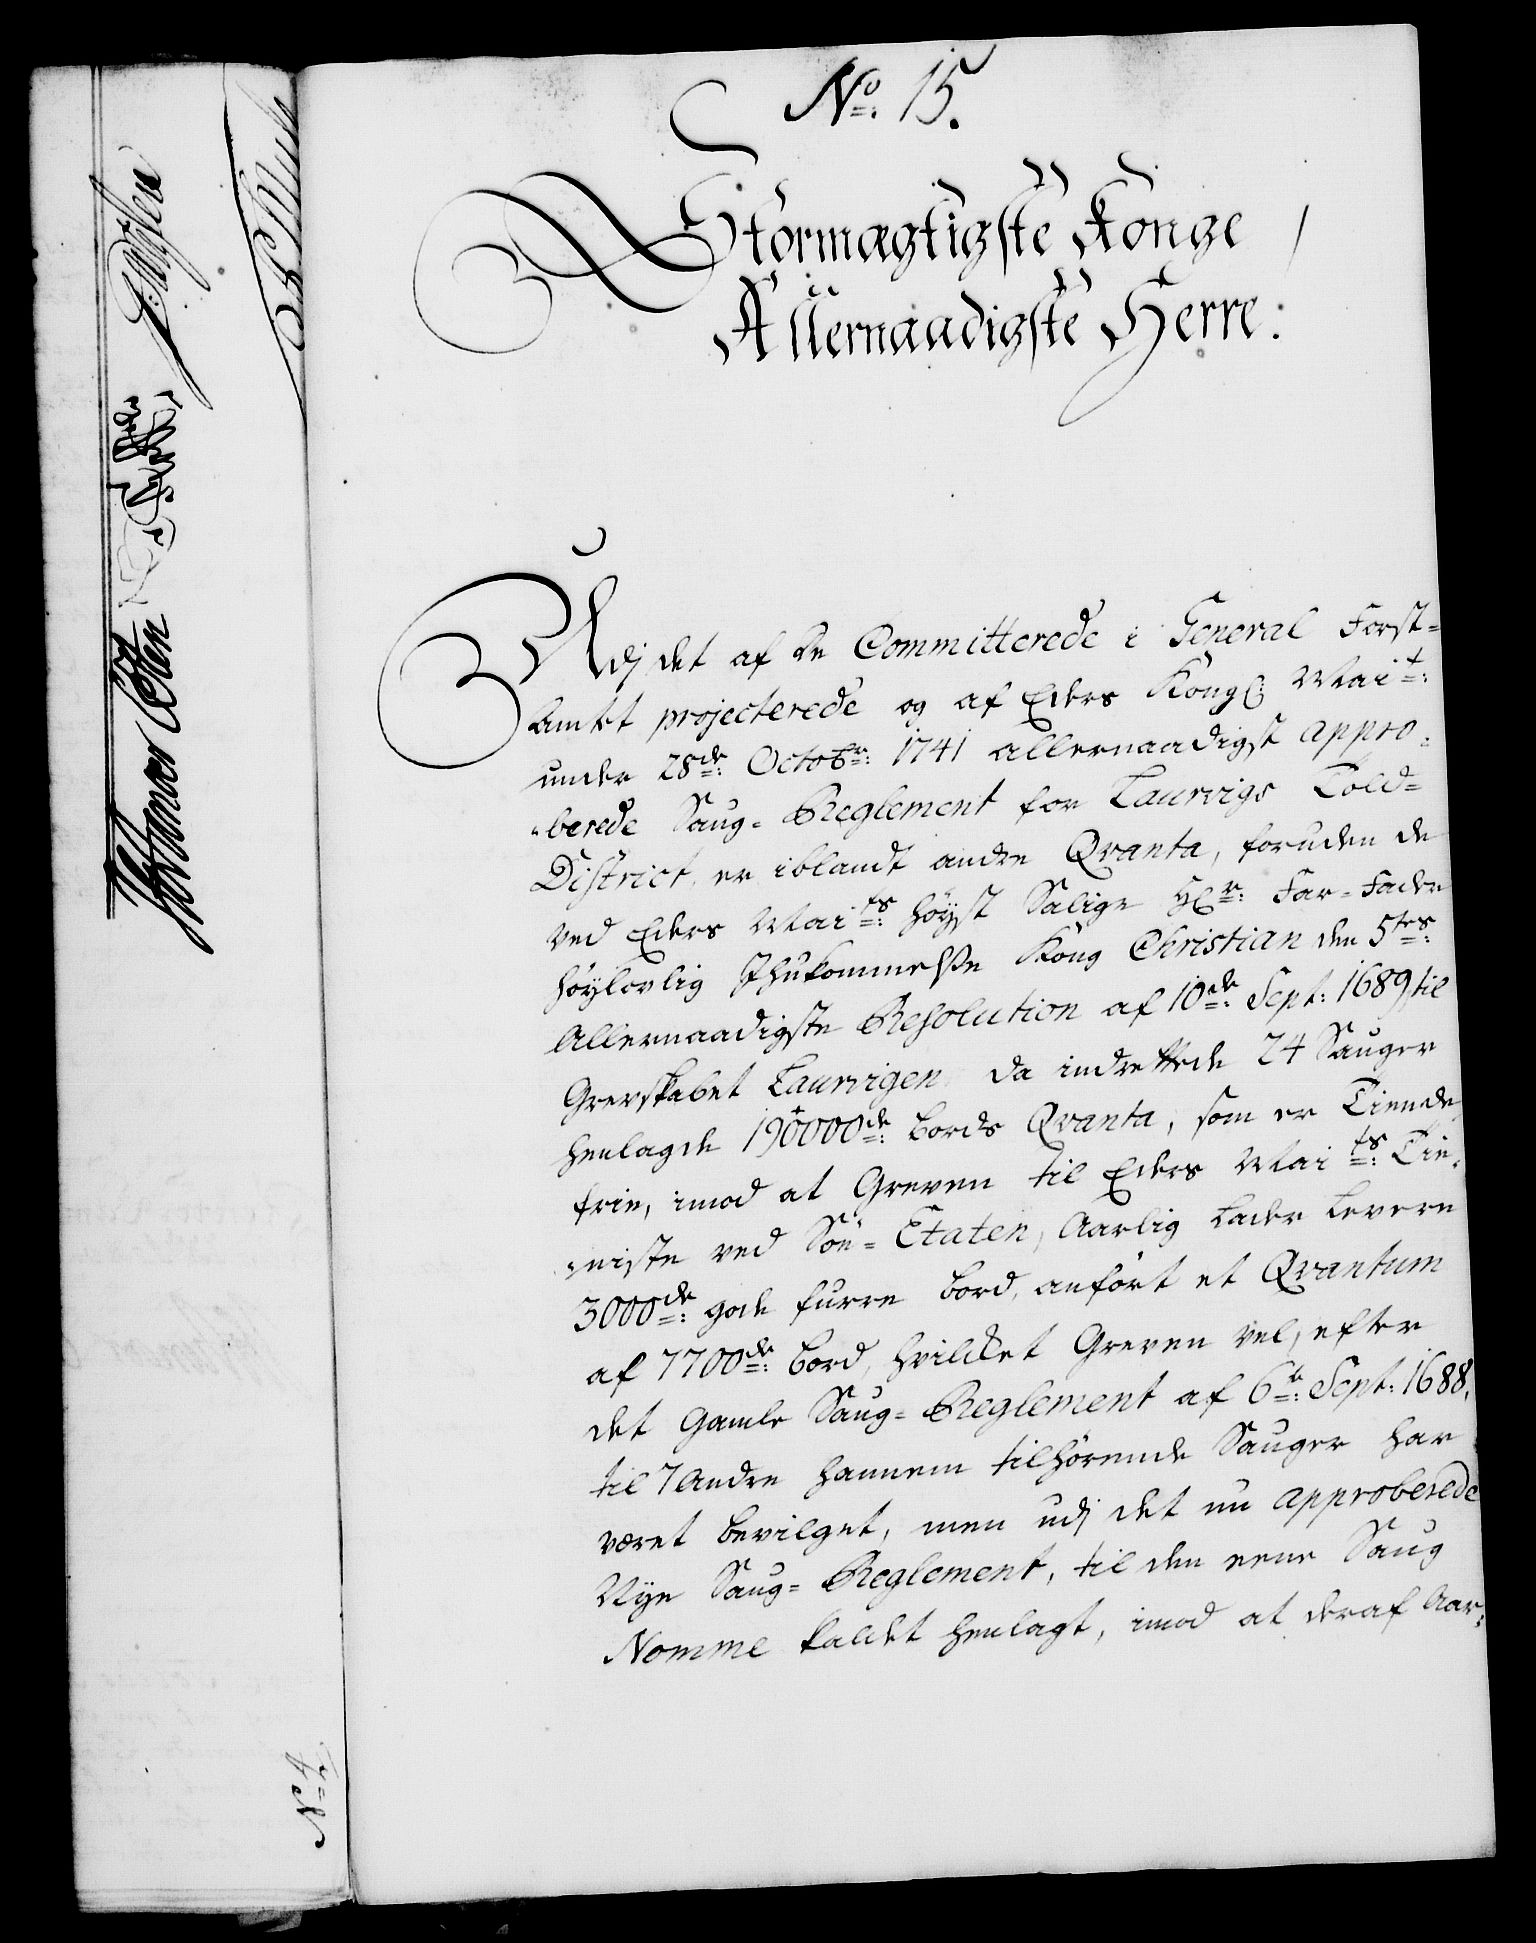 No. 15.
Stormægtigste Konge
Allernaadigste Herre:
Udj det af de Committerede i General Forst-
Amtet projecterede og af Eders Kongl: Mait:
under 28de: Octobr: 1741 allernaadigst appro-
berede Saug-Reglement for Laurvigs Told-
District, er iblandt andre Qvanta, foruden de
ved Eders Maits: høyst Salige Hr: Far-Fader
høylovlig Ihukommelse Kong Christian den 5tes:
Allernaadigste Resolution af 10de: Sept: 1689 til
Grevskabet Laurvigen da indrettede 24 Sauger
henlagde 190000de: bords Qvanta, som er Tiende
frie, imod at Greven til Eders Maits: Tie-
niste ved Søe-Etaten, Aarlig lader levere
3000de: gode furre bord, anført et Qvantum
af 7700de: bord, hvilcket Greven vel, efter
det gamle Saug-Reglement af 6te: Sept: 1688,
til 7 Andre hannem tilhørende Sauger har
været bevilget, men udj det nu approberede
Nye Saug-Reglement, til den eene Saug
Nomme kaldet henlagt, imod at deraf Aar-
No 4